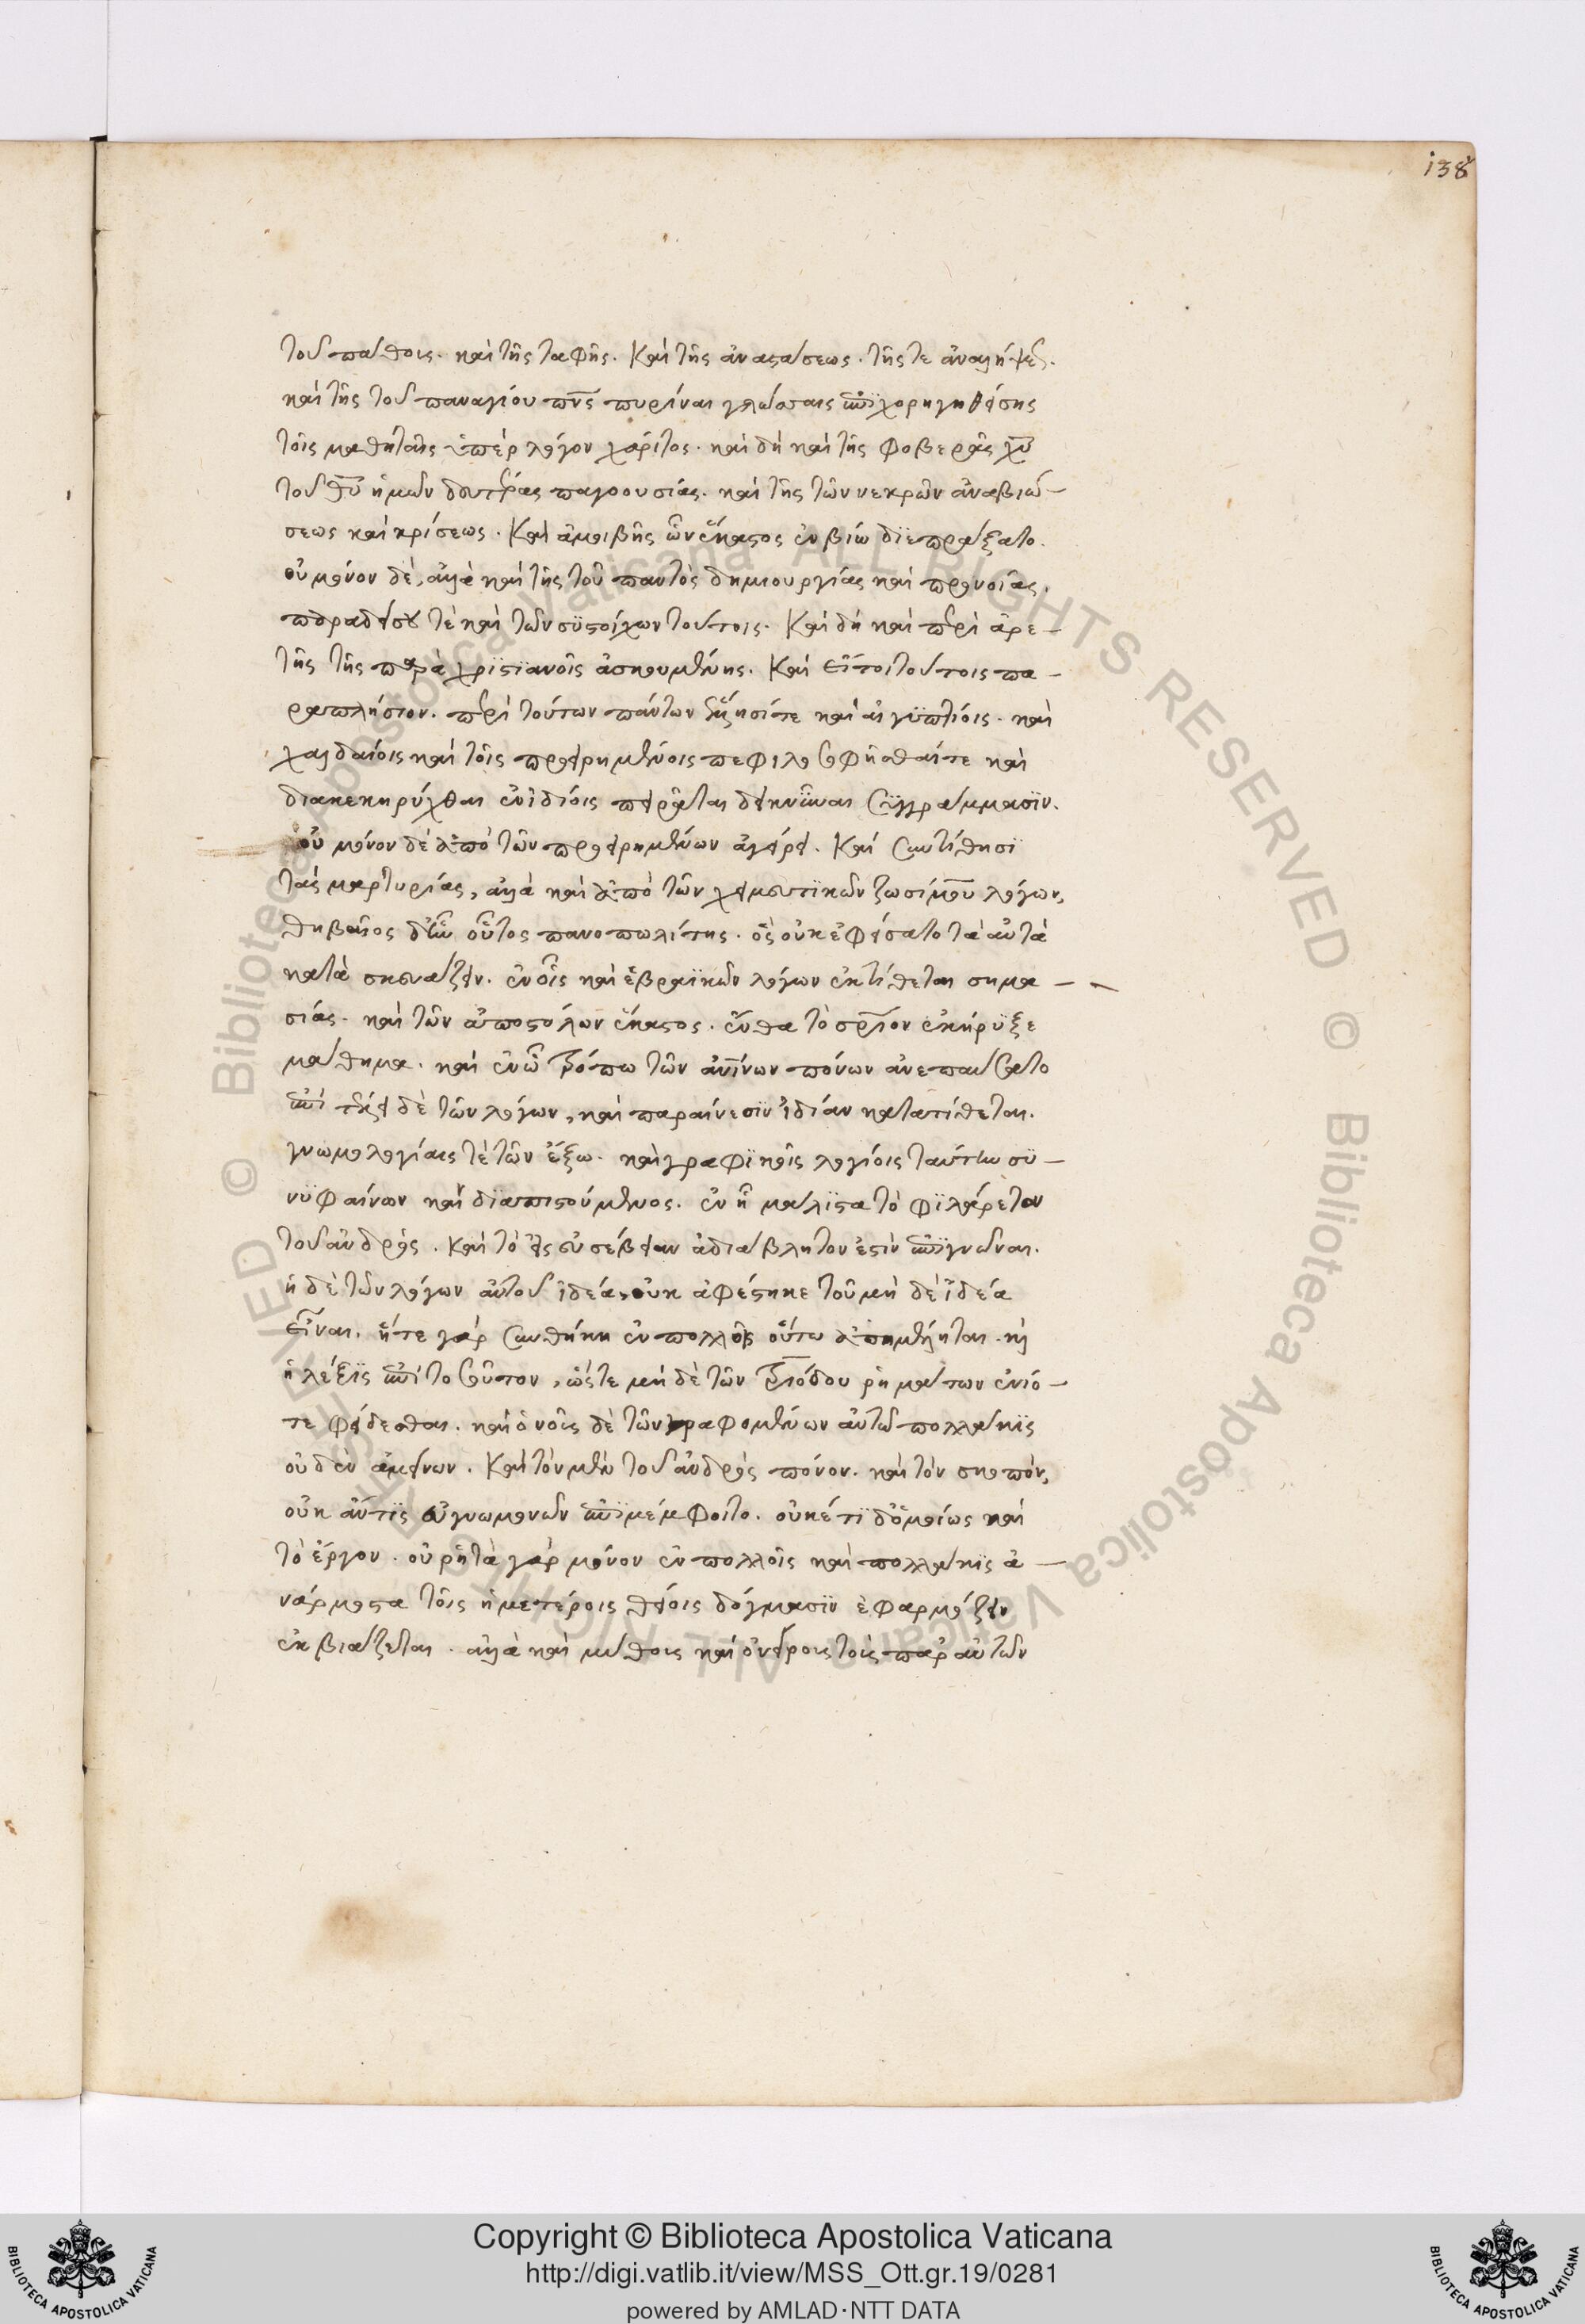 138
τοῦ πάθους. καὶ τῆς ταφῆς. Καὶ τῆς ἀναστάσεως. τῆς τε ἀναλήψεως.
καὶ τῆς τοῦ παναγίου πνς πυρίναις γλώσσαις ἐπιχορηγηθείσης
τοῖς μαθηταῖς ὑπὲρ λόγον χάριτος. καὶ δὴ καὶ τῆς φοβερᾶς χυ
τοῦ θυ ἡμῶν δευτέρας παρουσίας. καὶ τῆς τῶν νεκρῶν ἀναβιώ-
σεως καὶ κρίσεως. Καὶ ἀμοιβῆς ὧν ἕκαστος ἐν βίω διεπράξατο.
οὐ μόνον δὲ, ἀλλὰ καὶ τῆς τοῦ παντὸς δημιουργίας καὶ προνοίας.
παραδείσου τὲ καὶ τῶν συστοίχων τούτοις. Καὶ δὴ καὶ περὶ ἀρε-
τῆς τῆς παρὰ χριστιανοῖς ἀσκουμένης. Καὶ εἴ τοι τούτοις πα-
ραπλήσιον. περὶ τούτων πάντων ἕλλησί τε καὶ αἰγυπτίοις. καὶ
χαλδαίοις καὶ τοῖς προειρημένοις πεφιλοσοφῆσθαί τε καὶ
διακεκηρύχθαι ἐν ἰδίοις πειρᾶται δεικνύναι συγγράμμασιν.
οὐ μόνον δὲ ἀπὸ τῶν προειρημένων ἀγείρει. Καὶ συντίθησι
τὰς μαρτυρίας, ἀλλὰ καὶ ἀπὸ τῶν χειμευτικῶν ζωσίμου λόγων,
θηβαῖος δ' ἦν οὗτος πανοπωλίτης. ὃς οὐκ ἐφείσατο τὰ αὐτὰ
κατὰ σκευάζειν. ἐν οἷς καὶ ἑβραϊκῶν λόγων ἐκτίθεται σημα-
σίας. καὶ τῶν ἀποστόλων ἕκαστος. ἔνθα τὸ σριον ἐκήρυξε
μάθημα. καὶ ἐν ὧ τρόπω τῶν ἀνίνων πόνων ἀνεπαύσατο
ἐπὶ τέλει δὲ τῶν λόγων, καὶ παραίνεσιν ἰδίαν κατατίθεται.
γνωμολογίαις τὲ τῶν ἔξω. καὶ γραφικοῖς λογίοις ταύτην συ-
νυφαίνων καὶ διαπιστούμενος. ἐν ἧ μάλιστα τὸ φιλάρετον
τοῦ ἀνδρός. Καὶ τὸ εἰς εὐσέβειαν ἀδιάβλητον ἐστὶν ἐπιγνῶναι.
ἡ δὲ τῶν λόγων αὐτοῦ ἰδέα, οὐκ ἀφέστηκε τοῦ μὴ δὲ ἰδέα
εἶναι. ἥτε γὰρ συνθήκη ἐν πολλοῖς οὕτω ἀπημέληται. καὶ
ἡ λέξις ἐπὶ τοσοῦτον, ὥστε μὴ δὲ τῶν τριόδου ῥημάτων ἐνίο-
τε φείδεσθαι. καὶ ὁ νοῦς δὲ τῶν γραφομένων αὐτῶ πολλάκις
οὐδὲν ἀμείνων. Καὶ τὸν μὲν τοῦ ἀνδρὸς πόνον. καὶ τὸν σκοπόν,
οὐκ ἄν τις εὐγνωμονῶν ἐπιμέμφοιτο. οὐκέτι δ' ὁμοίως καὶ
τὸ ἔργον. οὐ ῥητὰ γὰρ μόνον ἐν πολλοῖς καὶ πολλάκις ἀ-
νάρμοστα τοῖς ἡμετέροις θείοις δόγμασιν ἐφαρμόζειν
ἐκβιάζεται. ἀλλὰ καὶ μύθοις καὶ ὀνείροις τοῖς παρ' αὐτῶν
© Biblioteca Apostolica Vaticana ALL RIGHTS RESERVED © Biblioteca Apostolica Vaticana ALL RIGHTS RESERVED
BIBLIOTECA APOSTOLICA VATICANA
Copyright © Biblioteca Apostolica Vaticana
http://digi.vatlib.it/view/MSS_Ott.gr.19/0281
powered by AMLAD·NTT DATA
BIBLIOTECA APOSTOLICA VATICANA